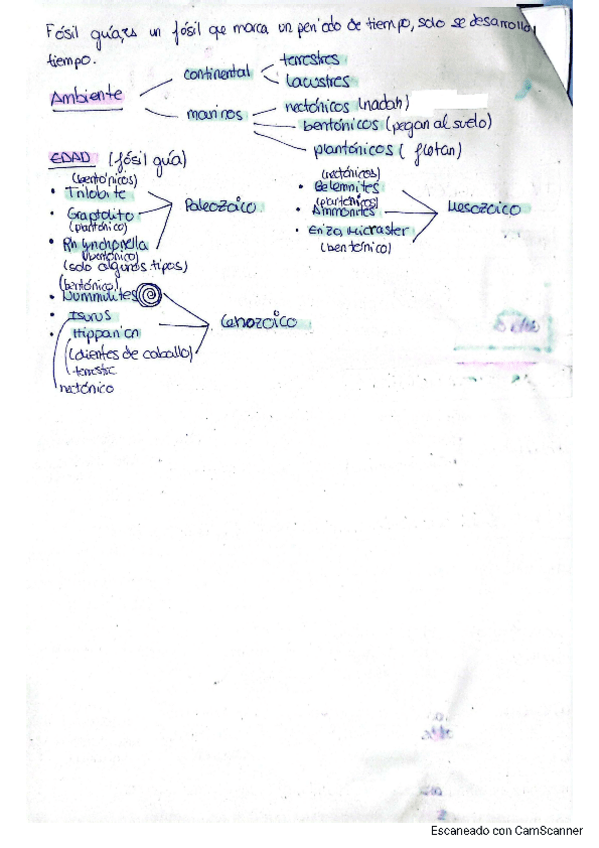 Fósil guía, es un fósil que marca un periodo de tiempo, solo se desarrolla
tiempo.
Ambiente
continental
terrestres
lacustres
marinos
nectónicos (nadan)
bentónicos (pegan al suelo)
plantónicos ( flotan)
EDAD (fósil guía)
(bentónicos)
• Trilobite
• Graptolito
(plantónico)
• Rhynchonella
(bentónico)
(solo algunos tipos)
Paleozoico
(nectónicos)
• Belemnites
(plantónicos)
• Ammonites
• Erizo Micraster
(bentónico)
Mesozoico
(bentónico)
• Nummulites
• Isurus
• Hipparion
(dientes de caballo)
terrestre
nectónico
Cenozoico
Escaneado con CamScanner